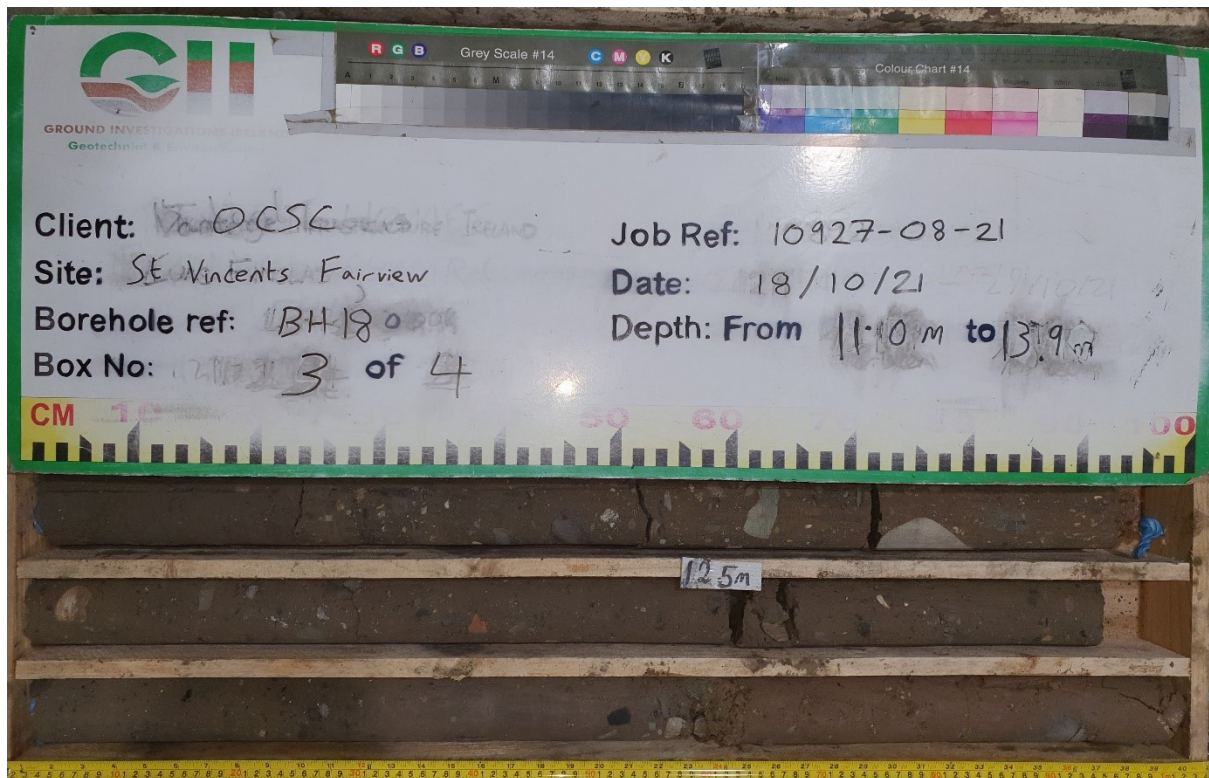 GROUND INVESTIGATIONS IRELAND
R G B Grey Scale #14 C M Y K
Colour Chart #14
Client: OCSC
Site: St Vincents Fairview
Borehole ref: BH18
Box No: 3 of 4
Job Ref: 10927-08-21
Date: 18/10/21
Depth: From 11.0 m to 13.9 m
CM 10 50 60 100
12.5m